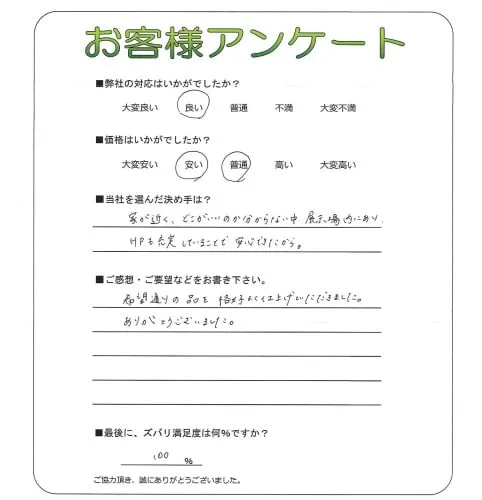 お客様アンケート
■弊社の対応はいかがでしたか？
大変良い 良い 普通 不満 大変不満
■価格はいかがでしたか？
大変安い 安い 普通 高い 大変高い
■当社を選んだ決め手は？
家が近く、どこがいいのか分からない中 展示場内にあり
HPも充実していることで安心できたから。
■ご感想・ご要望などをお書き下さい。
希望通りの品を格好よく仕上げていただきました。
ありがとうございました。
■最後に、ズバリ満足度は何％ですか？
100 ％
ご協力頂き、誠にありがとうございました。